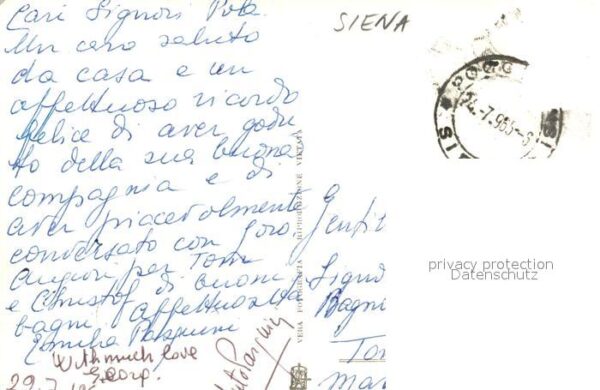 SIENA
Cari Signori Pota
Un caro saluto
da casa e un
affettuoso ricordo
felice di aver godu
to della sua buona
compagnia e di
aver piacevolmente
conversato con loro
Auguri per Tom
e Christof di buoni
bagni, affettuosità
Pasquini
With much love
29.7
VERA FOTOGRAFIA - RIPRODUZIONE VIETATA
Gentil
Signo
Bagni
privacy protection
Datenschutz